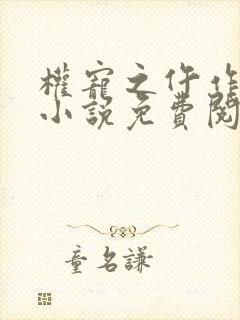 權寵之仵作
小說免費閱
童名謙